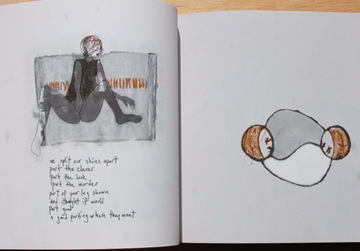 we split our shins apart
part the clover
part the look,
part the murder
part of your leg shown
and thought it would
part good
a good parting where they meet